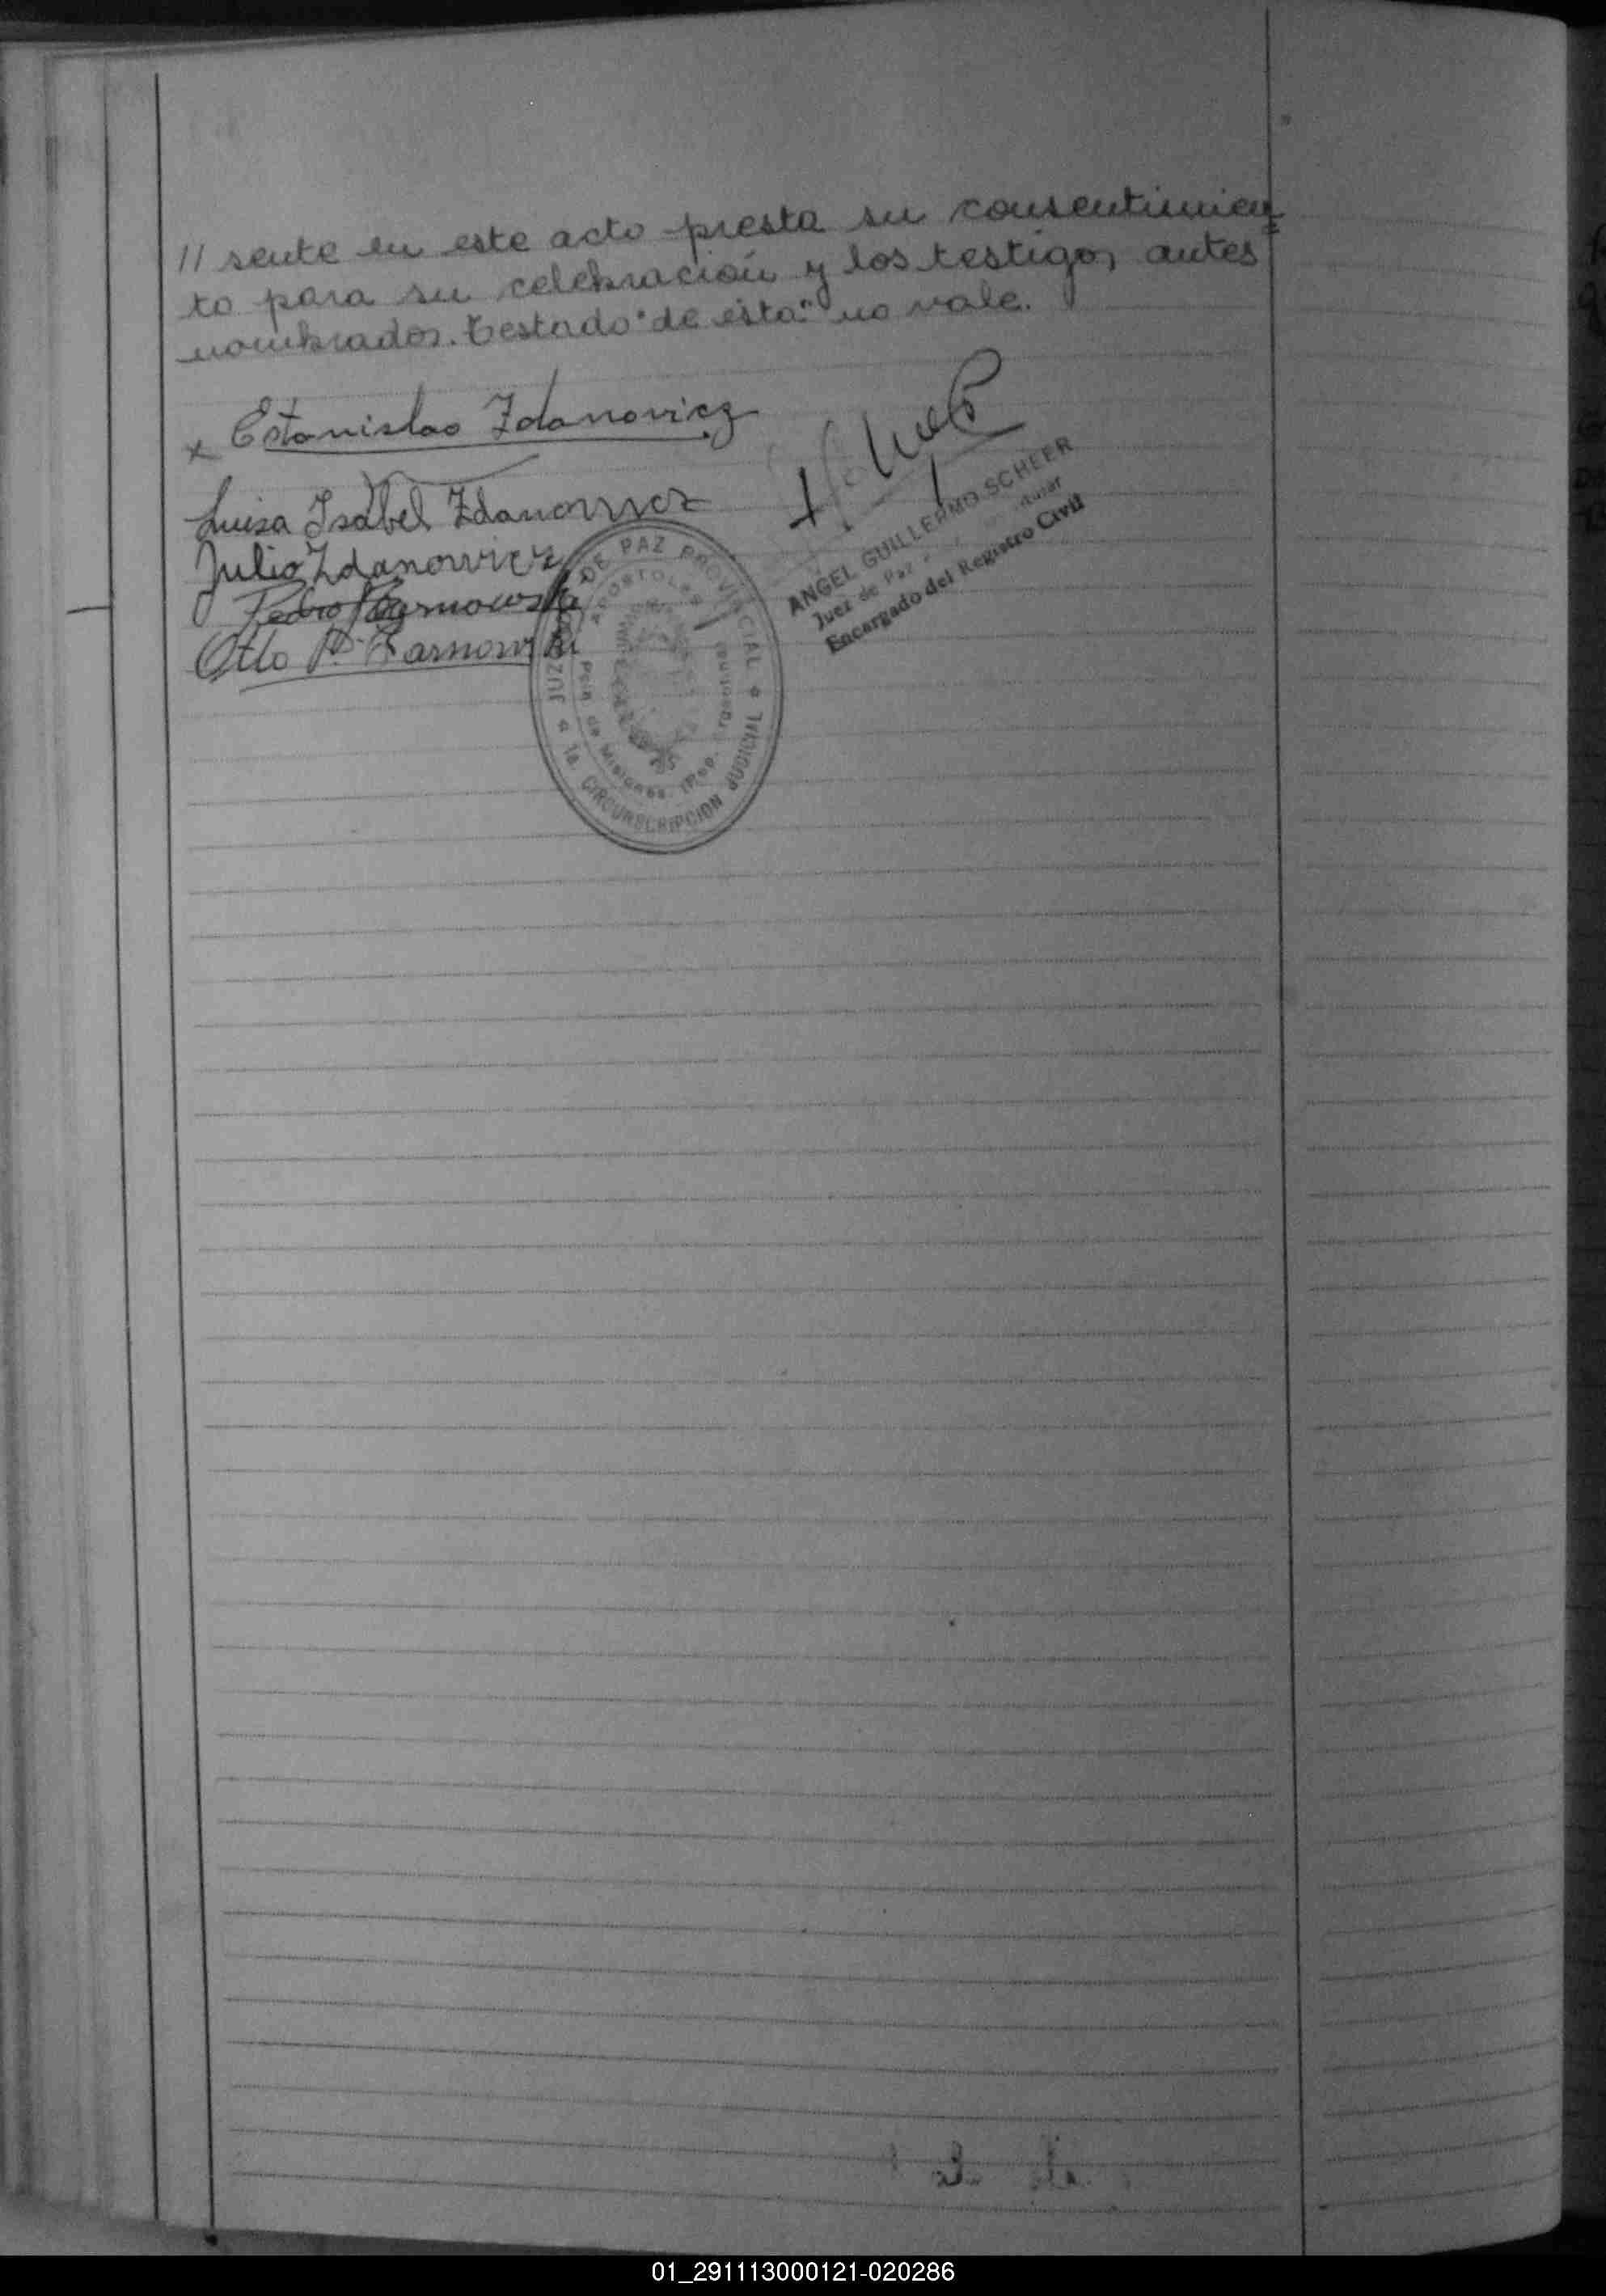 // sente en este acto presta su consentimien=
to para su celebración y los testigos antes
nombrados. Testado "de esta:" no vale.
x Estanislao Zdanovicz
Luisa Isabel Zdanovicz
Julio Zdanowicz
Pedro
Otto P. Zarnowski
ANGEL GUILLERMO SCHEER
Juez de Paz Titular
Encargado del Registro Civil
JUZGADO DE PAZ PROVINCIAL
1a. CIRCUNSCRIPCION JUDICIAL
APOSTOLES
Pcia. de Misiones (Rep. Argentina)
01_291113000121-020286